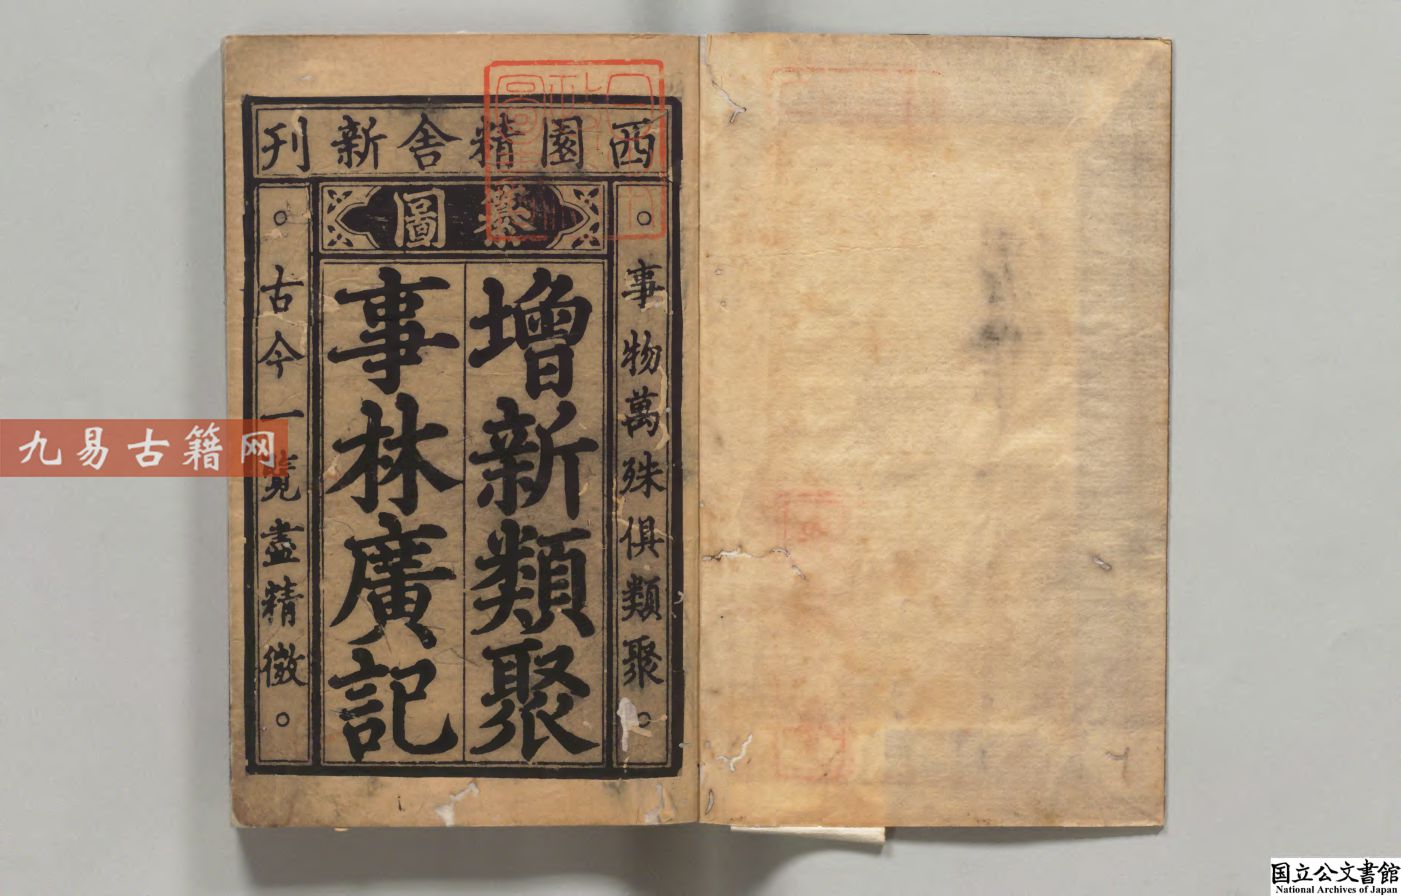 西園精舍新刊
纂圖
增新類聚
事林廣記
。事物萬殊俱類聚。
。古今一覽盡精微。
九易古籍网
国立公文書館
National Archives of Japan